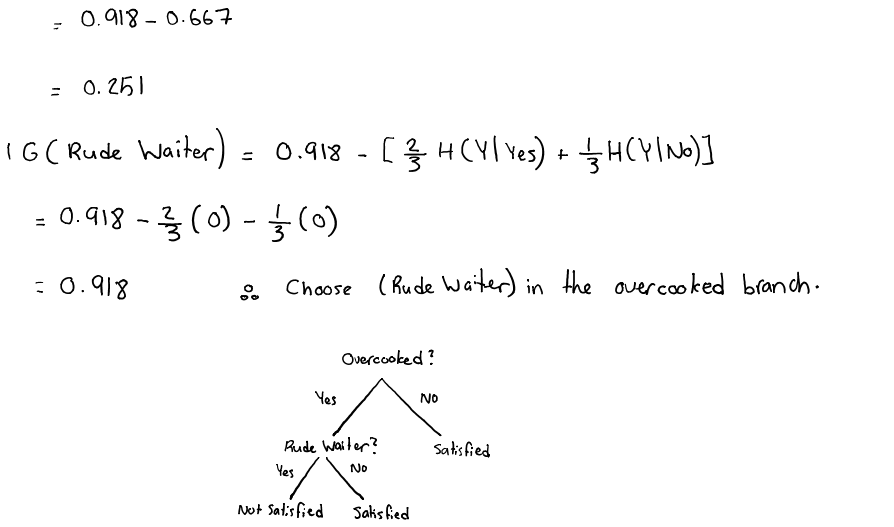 = 0.918 - 0.667
= 0.251
IG(Rude Waiter) = 0.918 - [2/3 H(Y|Yes) + 1/3 H(Y|No)]
= 0.918 - 2/3 (0) - 1/3 (0)
= 0.918 ∴ Choose (Rude Waiter) in the overcooked branch.
Overcooked?
Yes No
Rude Waiter? Satisfied
Yes No
Not Satisfied Satisfied